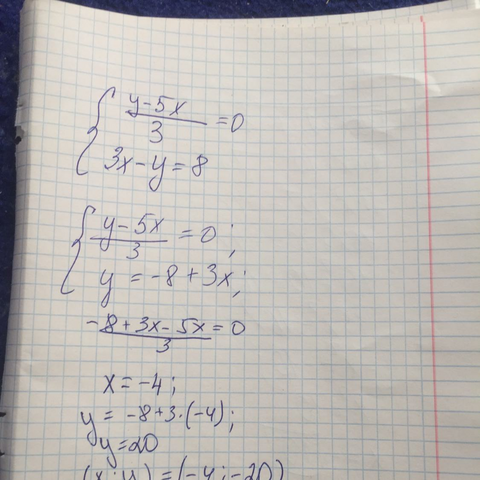 y-5x/3 = 0
3x-y=8
y-5x/3 = 0;
y = -8+3x;
-8+3x-5x/3 = 0
x=-4;
y= -8+3·(-4);
y=20
(x;y)=(-4;-20)